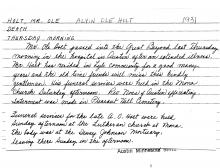 HOLT, MR. OLE ALVIN OLE HOLT 1931
DEATH
THURSDAY MORNING
Mr. Ole Holt passed into the Great Beyond last Thursday
morning in the hospital in Austin after an extended illness.
Mr. Holt has resided in Lyle community for a good many
years and the old time friends will miss this kindly
gentleman. His funeral services were held in the Mona
Church Saturday afternoon. Rev. of Austin officiating.
Interment was made in Pleasant Hill Cemetery.
Funeral services for the late A. O. Holt were held
afternoon at the Lutheran church at Mona.
The body was at the Johnson Mortuary,
leaving there Sunday in the afternoon.
Austin Minnesota